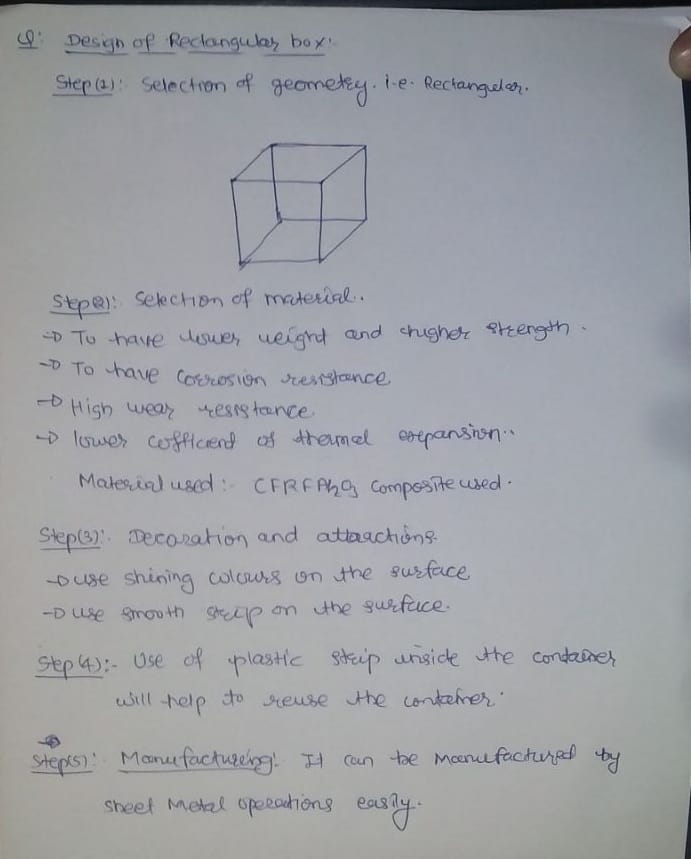 Q: Design of Rectangular box:
Step(1): Selection of geometry. i.e. Rectangular.
Step(2): Selection of material.
→ To have lower weight and higher strength.
→ To have corrosion resistance
→ High wear resistance
→ lower cofficient of thermal expansion..
Material used:- composite used.
Step(3): Decoration and attractions.
→ use shining colours on the surface
→ use smooth strip on the surface.
Step(4):- Use of plastic strip inside the container
will help to reuse the container.
Step(5): Manufacturing: It can be manufactured by
sheet Metal operations easily.